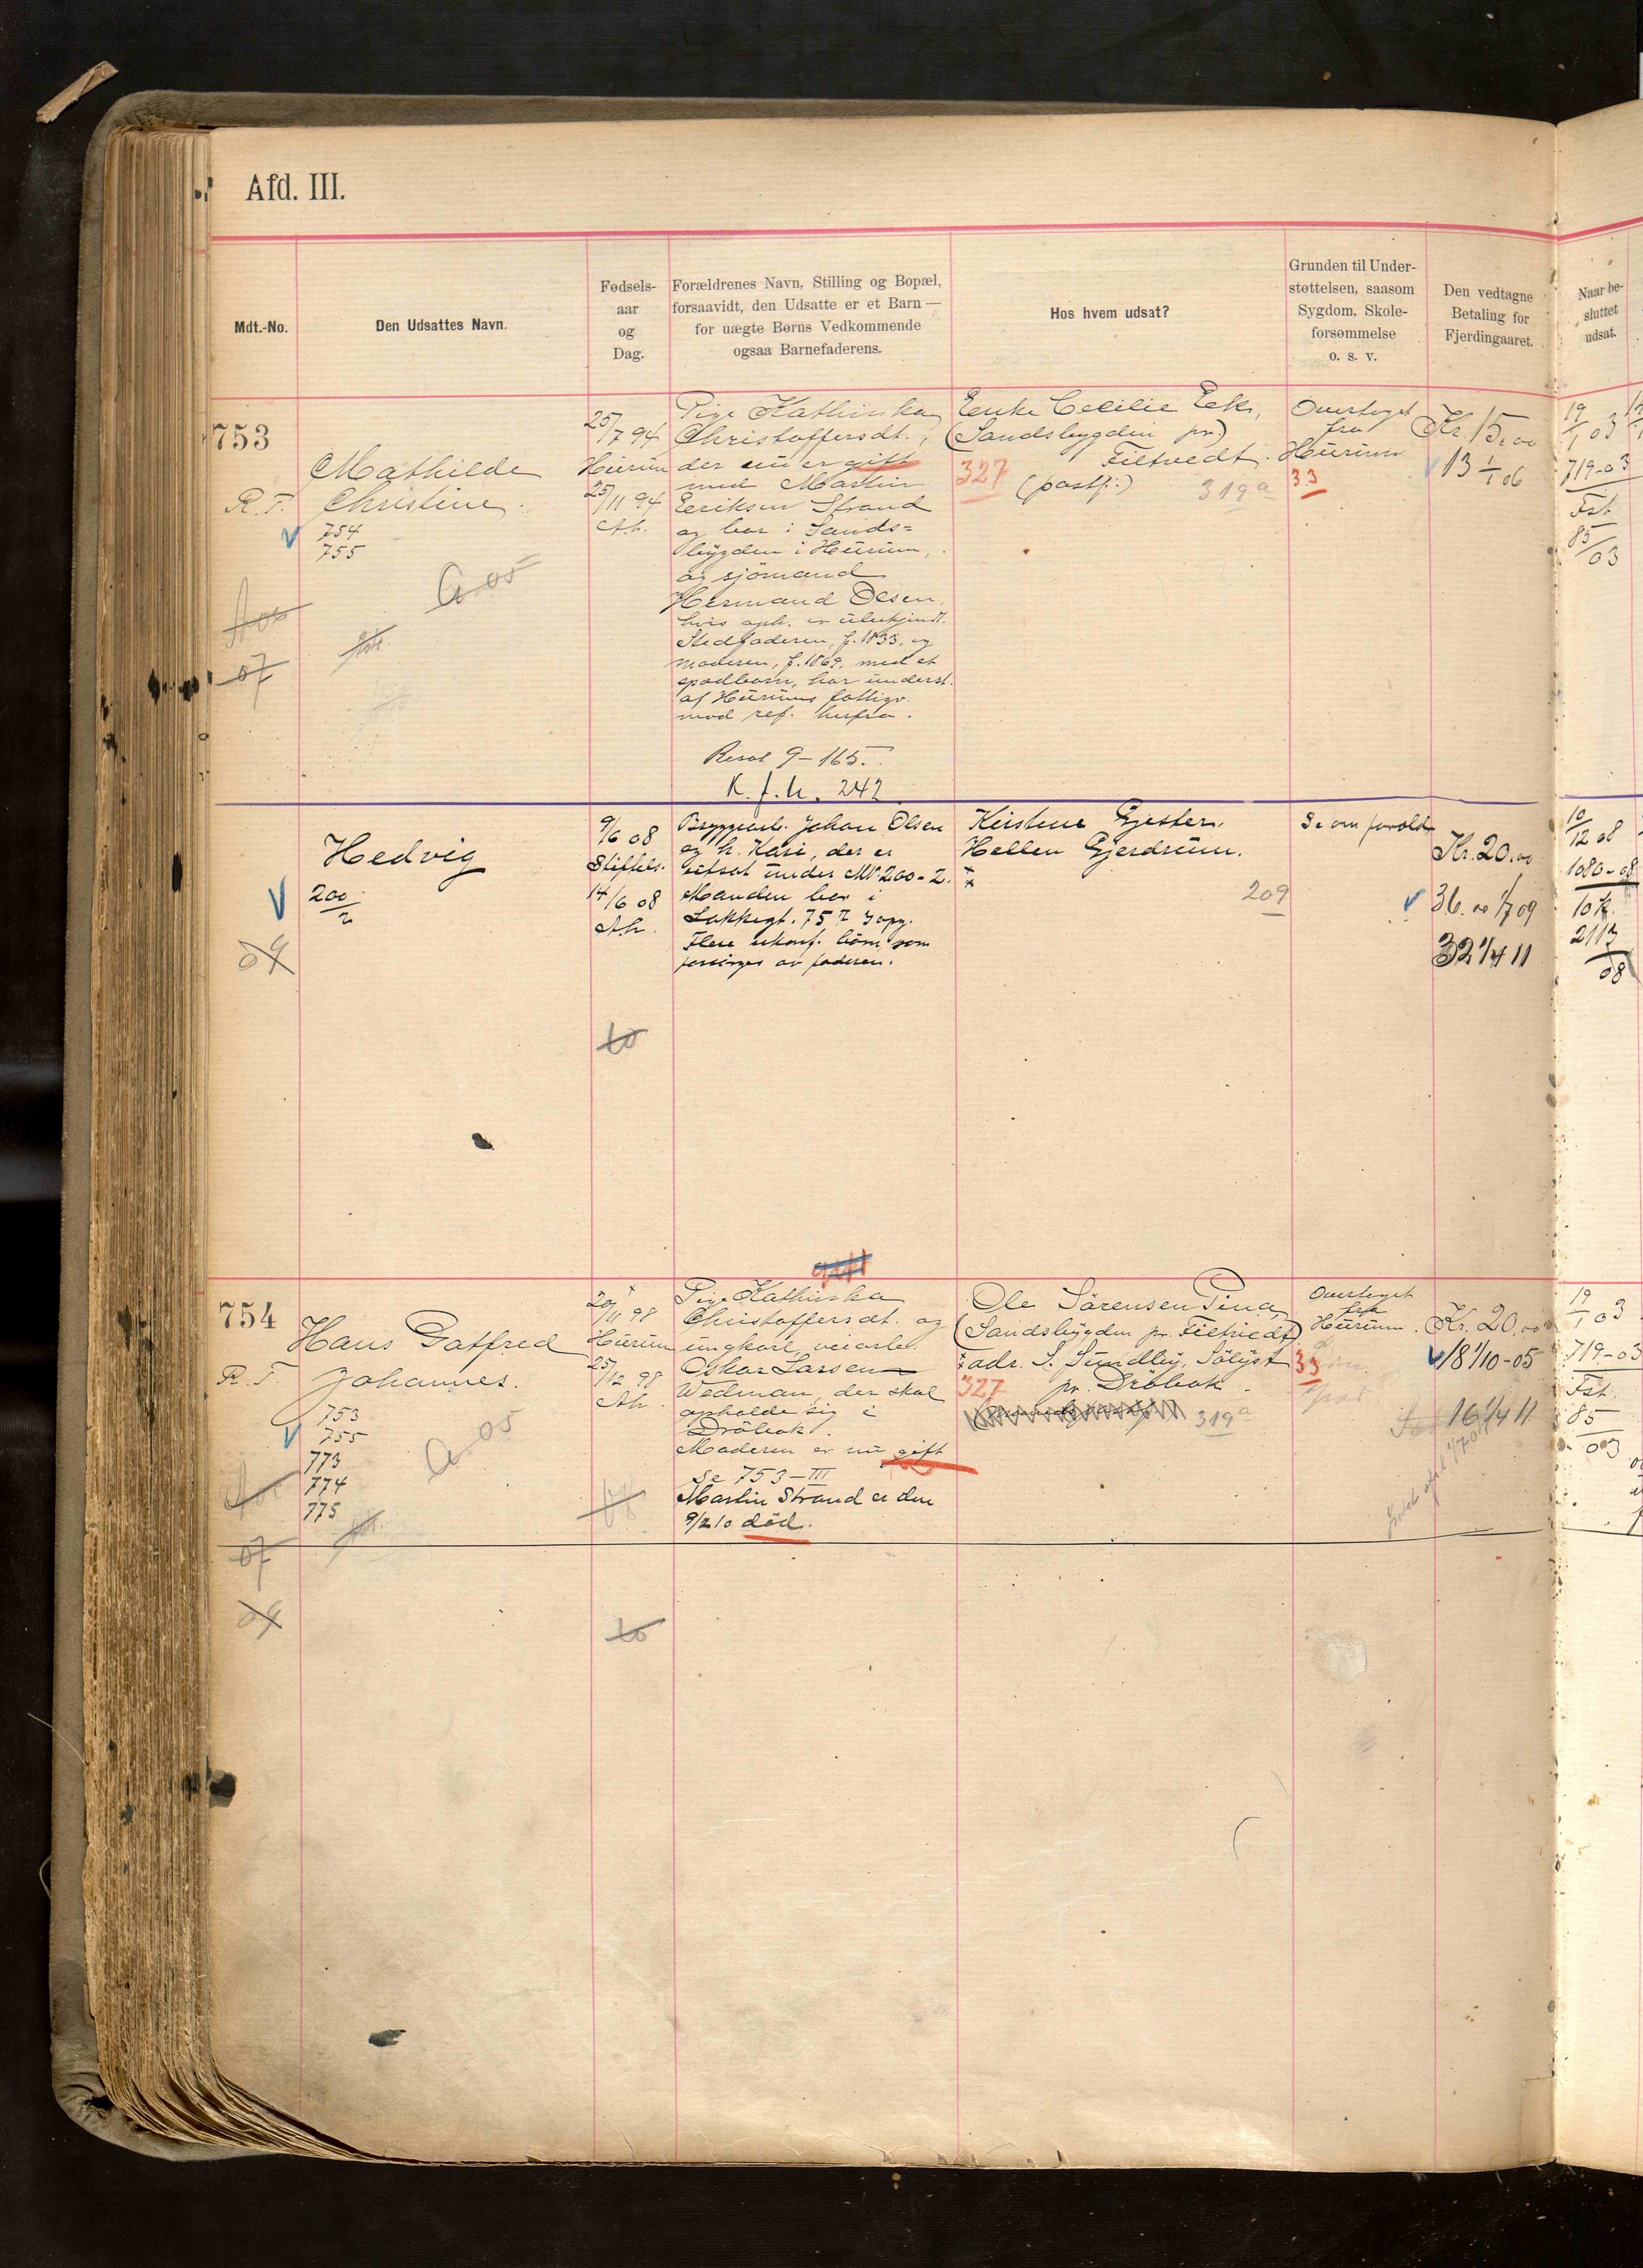 Afd. III.
Mdt.-No.
Den Udsattes Navn.
Fødsels-
aar
og
Dag.
Forældrenes Navn, Stilling og Bopæl,
forsaavidt, den Udsatte er et Barn —
for uægte Børns Vedkommende
ogsaa Barnefaderens.
Hos hvem udsat?
Grunden til Under-
støttelsen, saasom
Sygdom, Skole-
forsømmelse
o. s. v.
Den vedtagne
Betaling for
Fjerdingaaret.
Naar be-
sluttet
udsat.
753
R. F.
07
Mathilde
Christine.
754
755
a 05
25/7 94
Hurum
25/11 94
Ah.
Pige Kathinka
Christoffersdt.,
der nu er gift
med Martin
Eeriksen Strand
og bor i Sands=
bygden i Hurum,
og sjömand
Hermand Olsen,
hvis oph. er ubekjendt.
Stedfaderen, f. 1833, og
moderen, f. 1869, med et
spædbarn, har underst.
af Hurums fattigv.
mod ref. herfra.
Resol 9-165.
K. f. h. 242
Enke Cecilie Eek,
(Sandsbygden pr.)
Filtvedt.
327
(postp.)
319a
Overtaget
fra
Hurum
33
Kr. 15,00
13 1/1 06
19/1 03
719-03
Fst.
85/03
Hedvig
200/2
09
9/6 08
Stiftels.
14/6 08
Ah.
10
Bryggearb. Johan Olsen
og h. Kari, der er
utsat under Nr 200-2.
Manden bor i
Lakkegt. 75
Flere ukonf. börn som
forsörges av faderen.
Kirstine Gjester.
Hellen Gjerdrum.
209
Se om forold
Kr. 20.00
36.00 1/7 09
32 1/4 11
10/12 08
1080-08
10 K.
2113/08
754
R. F.
07
09
Hans Gotfred
Johannes.
753
755
773
774
775
a 05
20/11 98
Hurum
25/12 98
Ah.
10
gift
Pige Kathinka
Christoffersdt. og
ungkarl, veiarb.
Oskar Larsen
Wedman, der skal
opholde sig i
Dröbak.
Moderen er nu gift
Se 753-III
Martin Strand er den
9/2 10 död.
Ole Sörensen Tina,
(Sandsbygden pr. Filtvedt)
adr. S. Sundby, Sölyst
327 pr. Dröbak.
319a
Overtaget
fra
Hurum.
33
Kr. 20,00
18 1/10-05
16 1/4 11
19/1 03
719-03
Fst.
85
03